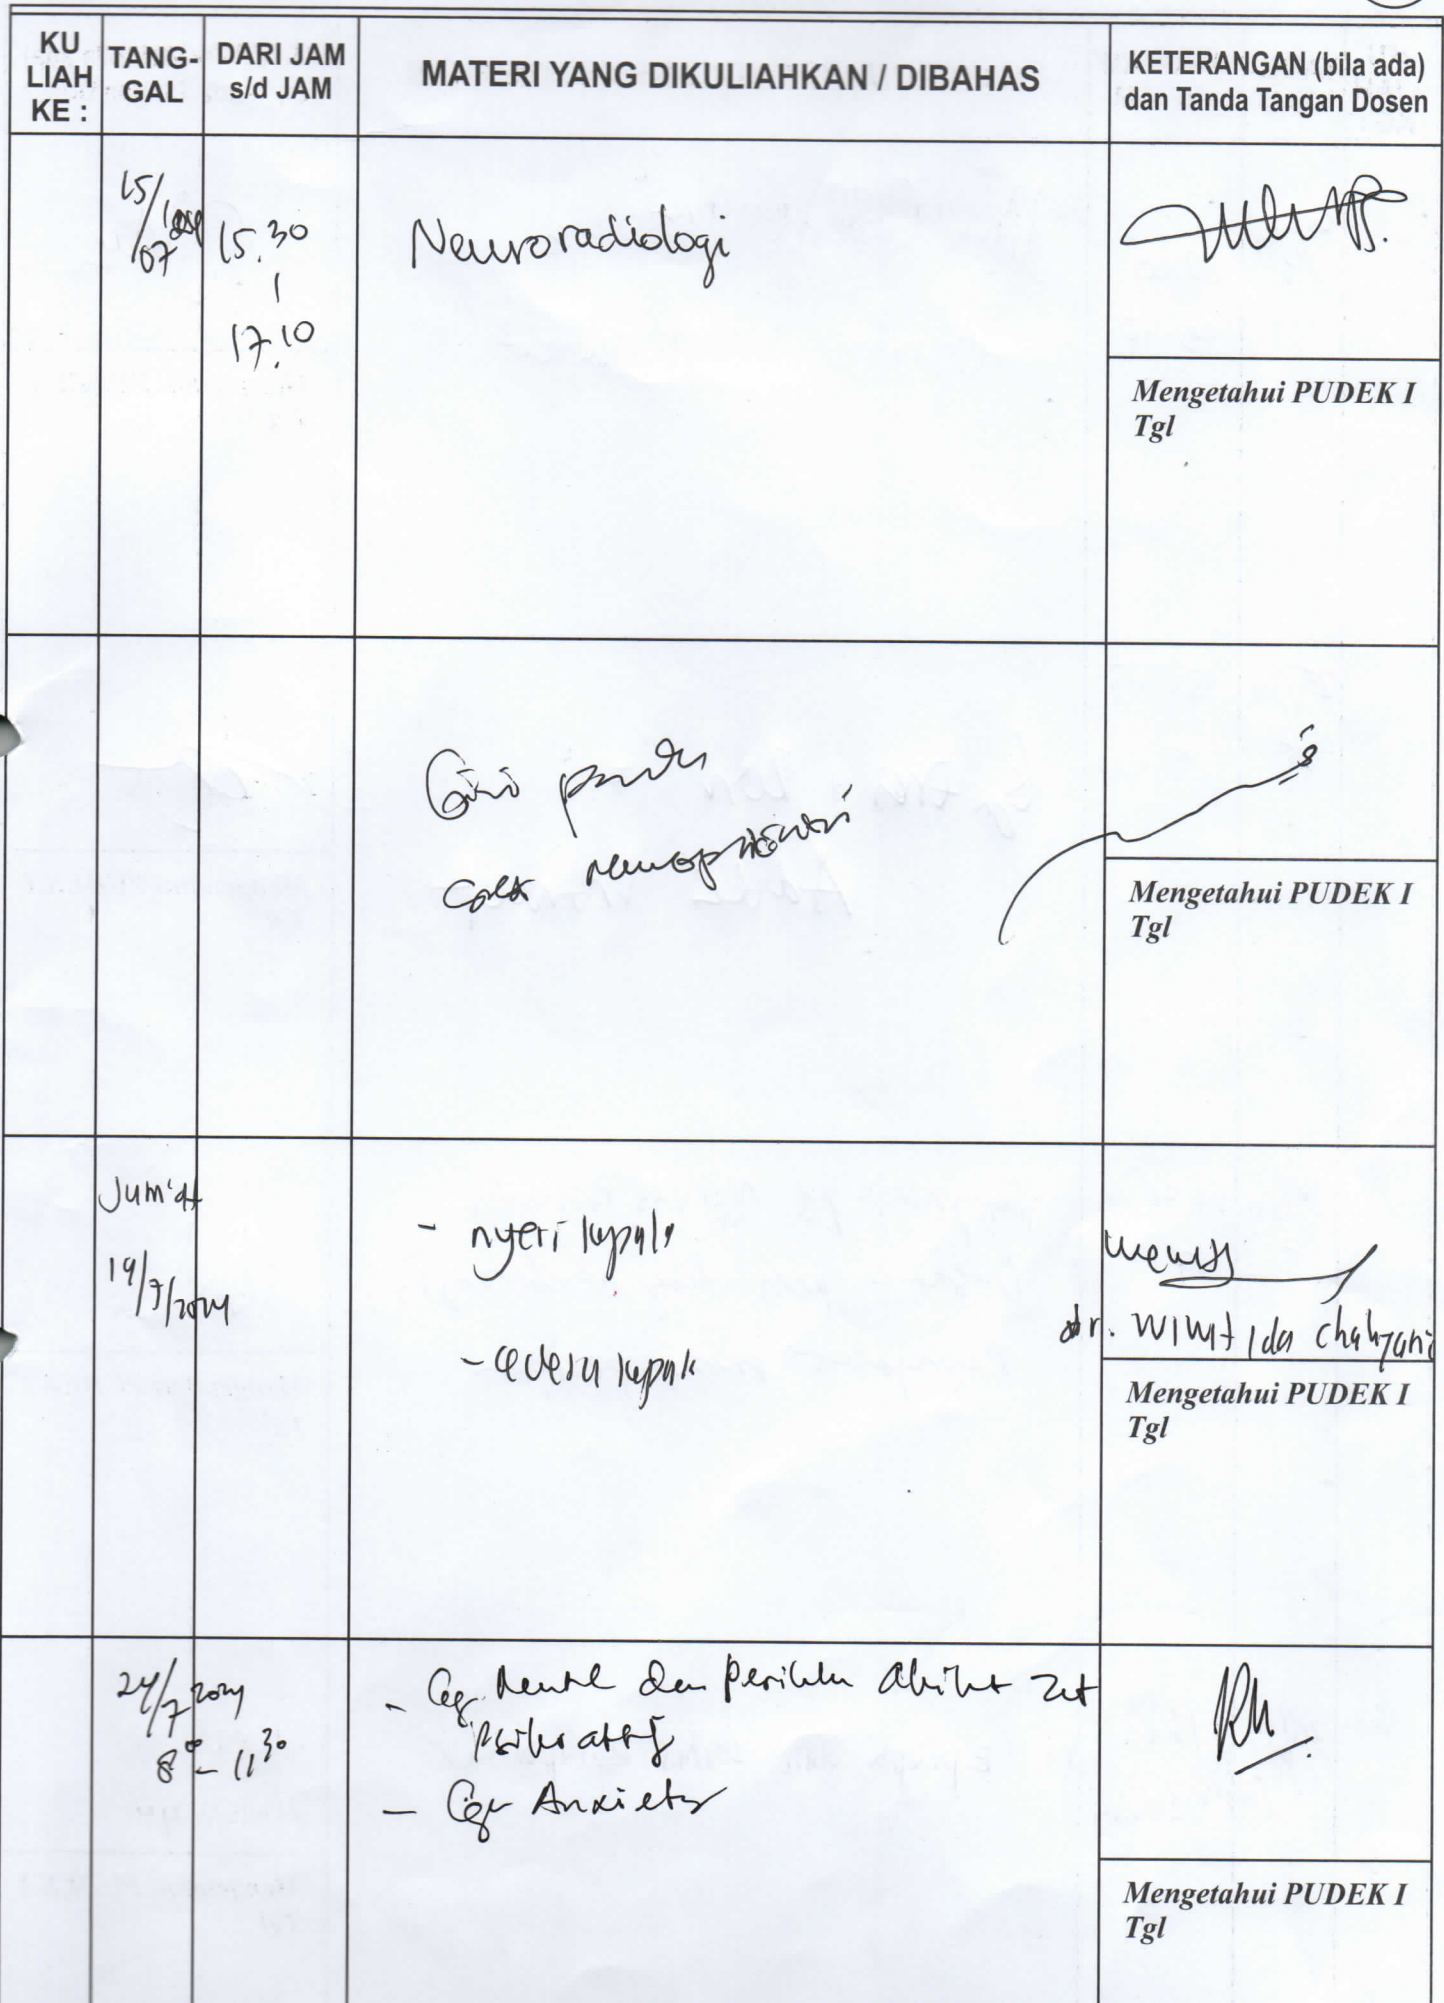 KU
LIAH
KE :
TANG-
GAL
DARI JAM
s/d JAM
MATERI YANG DIKULIAHKAN / DIBAHAS
KETERANGAN (bila ada)
dan Tanda Tangan Dosen
15/
07
15.30
17.10
Neuroradiologi
Mengetahui PUDEK I
Tgl
Gizi pada
neuropsikiatri
Mengetahui PUDEK I
Tgl
Jum'at
19/7/2024
- nyeri kepala
- cedera kepala
dr.
Mengetahui PUDEK I
Tgl
24/7 2024
8⁰⁰ - 11³⁰
- Ggn Mental dan Perilaku Akibat Zat
Psikoaktif
- Ggn Anxietas
Mengetahui PUDEK I
Tgl